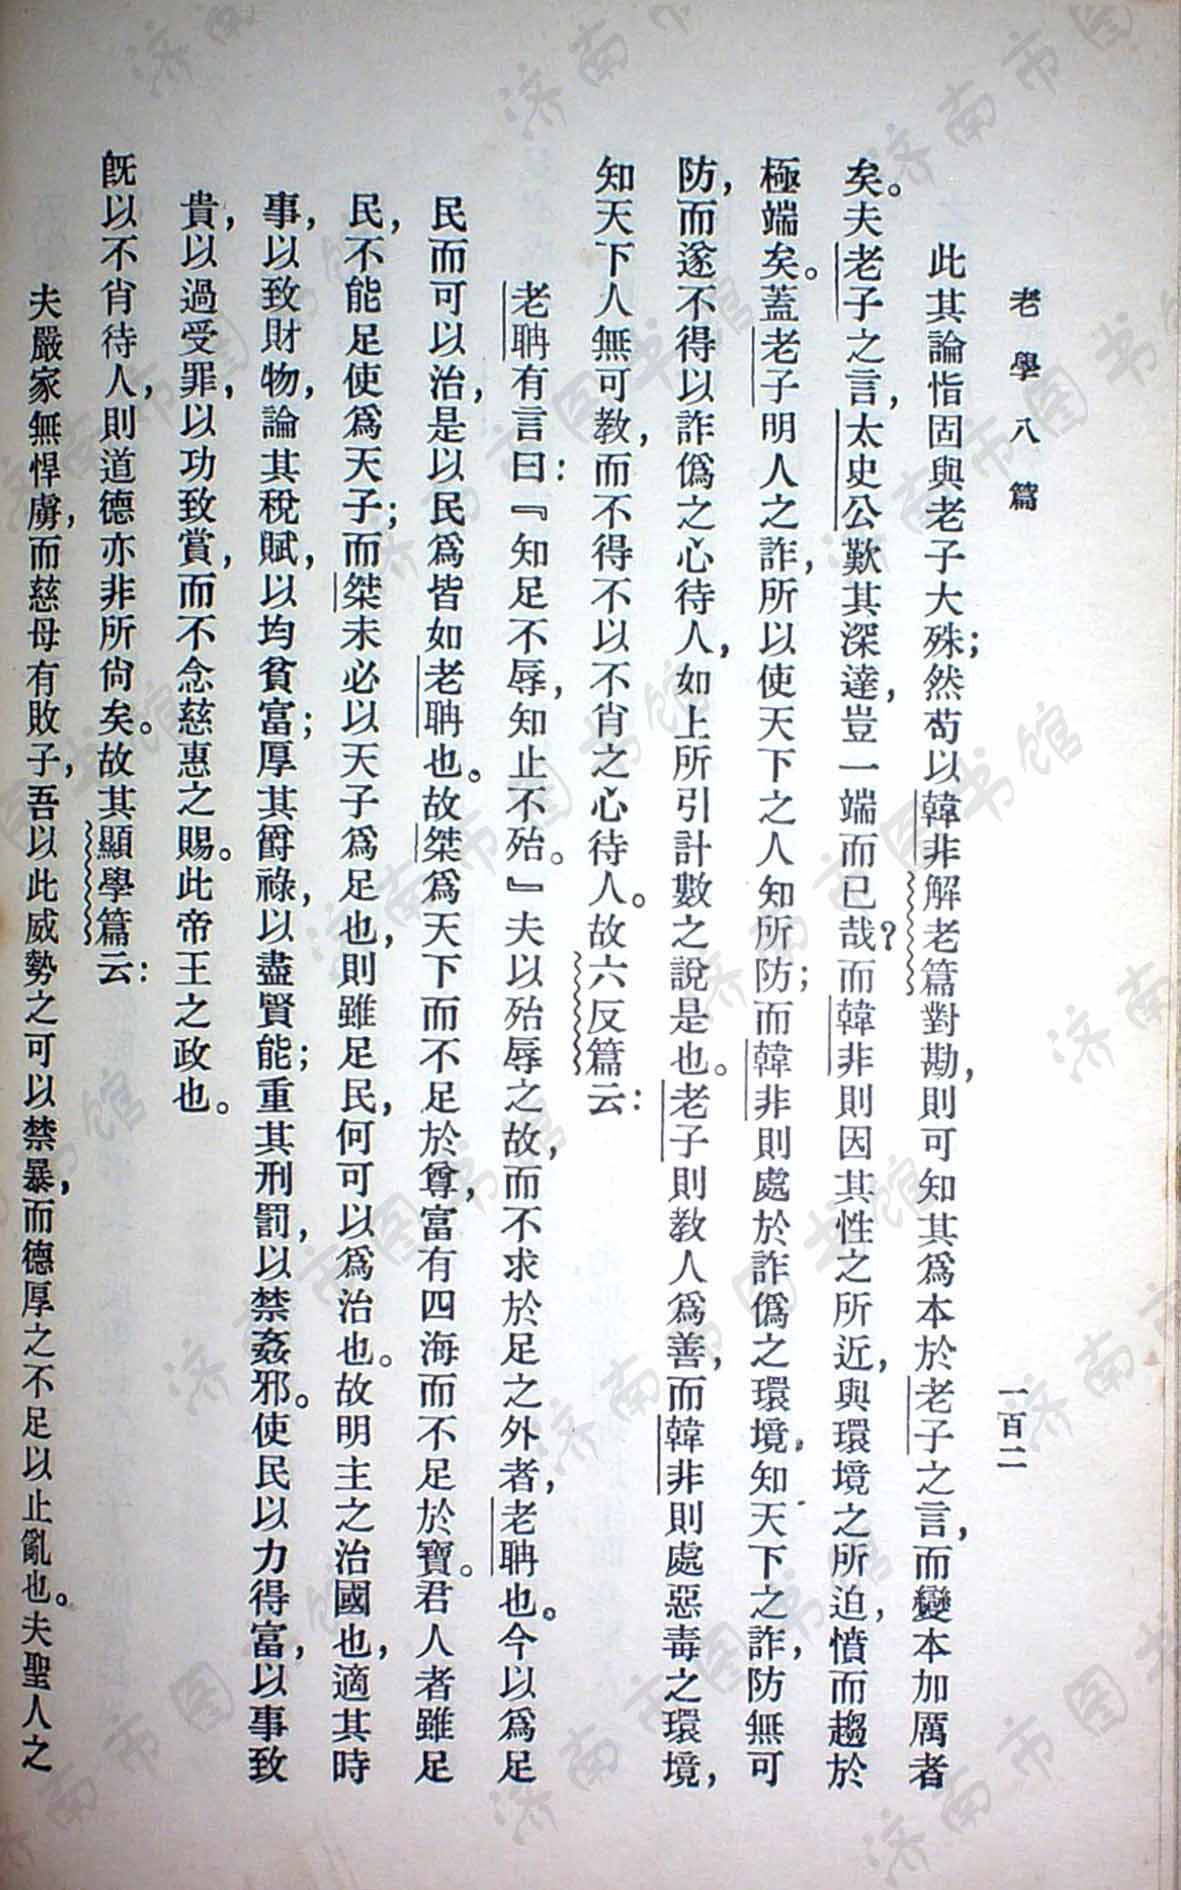 老學八篇
一百二
此其論恉固與老子大殊；然苟以韓非解老篇對勘，則可知其爲本於老子之言，而變本加厲者
矣。夫老子之言，太史公歎其深達，豈一端而已哉？而韓非則因其性之所近，與環境之所迫，憤而趨於
極端矣。蓋老子明人之詐，所以使天下之人知所防；而韓非則處於詐僞之環境，知天下之詐，防無可
防，而遂不得以詐僞之心待人，如上所引計數之說是也。老子則教人爲善，而韓非則處惡毒之環境，
知天下人無可教，而不得不以不肖之心待人。故六反篇云：
老聃有言曰：『知足不辱，知止不殆。』夫以殆辱之故，而不求於足之外者，老聃也。今以爲足
民而可以治，是以民爲皆如老聃也。故桀爲天下而不足於尊，富有四海而不足於寶。君人者雖足
民，不能足使爲天子；而桀未必以天子爲足也，則雖足民，何可以爲治也。故明主之治國也，適其時
事，以致財物，論其稅賦，以均貧富；厚其爵祿，以盡賢能；重其刑罰，以禁姦邪。使民以力得富，以事致
貴，以過受罪，以功致賞，而不念慈惠之賜。此帝王之政也。
旣以不肖待人，則道德亦非所尙矣。故其顯學篇云：
夫嚴家無悍虜，而慈母有敗子，吾以此威勢之可以禁暴，而德厚之不足以止亂也。夫聖人之
济南市图书馆
济南市图书馆
济南市图书馆
济南市图书馆
济南市图书馆
济南市图书馆